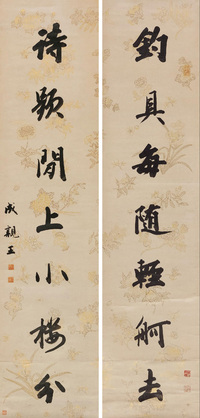 釣具每随輕舸去
詩題閒上小樓分
成親王